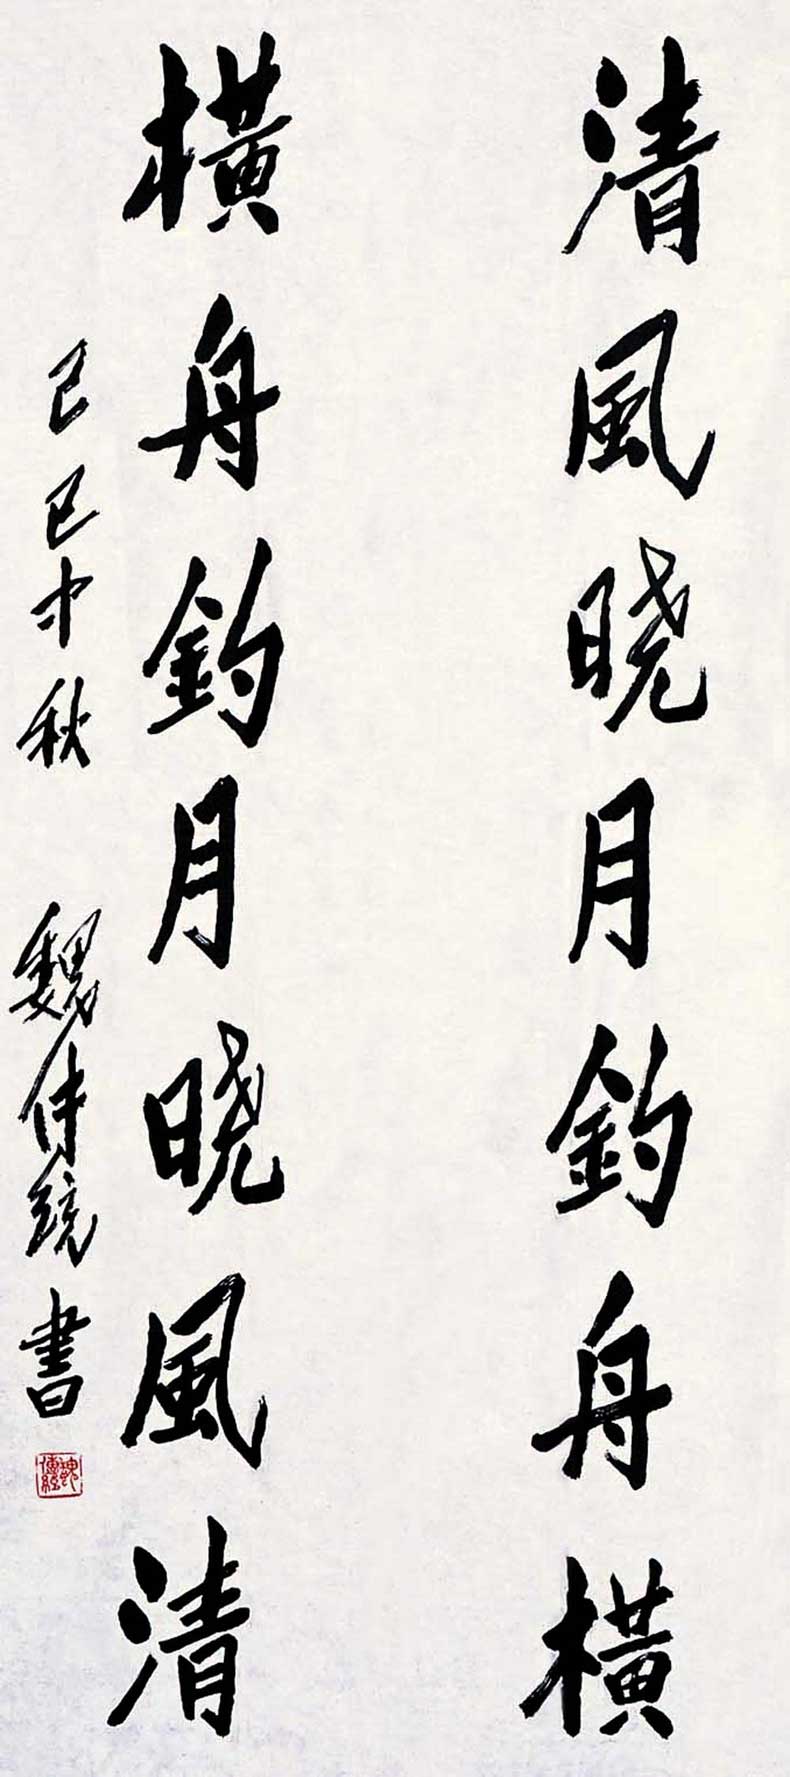 清風晓月釣舟横
横舟釣月晓風清
己巳中秋 魏传統書
魏傳統